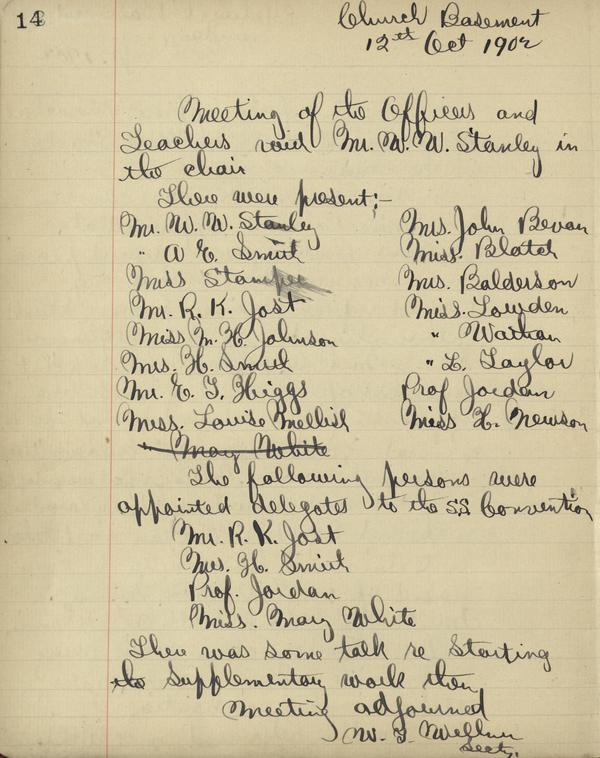 14
Church Basement
12th Oct 1902
Meeting of the Officers and
Teachers Mr. W. W. Stanley in
the chair
There were present:-
Mr. W. W. Stanley
" A E. Smith
Miss
Mr. R. K. Jost
Miss M. H. Johnson
Mrs. H. Smith
Mr. E. T. Higgs
Miss. Louise Mellish
" May White
Mrs. John Bevan
Miss. Blatch
Mrs. Balderson
Miss. Lowden
"
" L. Taylor
Prof Jordan
Miss H. Newson
The following persons were
appointed delegates to the SS Convention
Mr. R. K. Jost
Mrs. H. Smith
Prof. Jordan
Miss. Mary White
There was some talk re Starting
to Supplementary work then
meeting adjourned
W. T.
Secty.